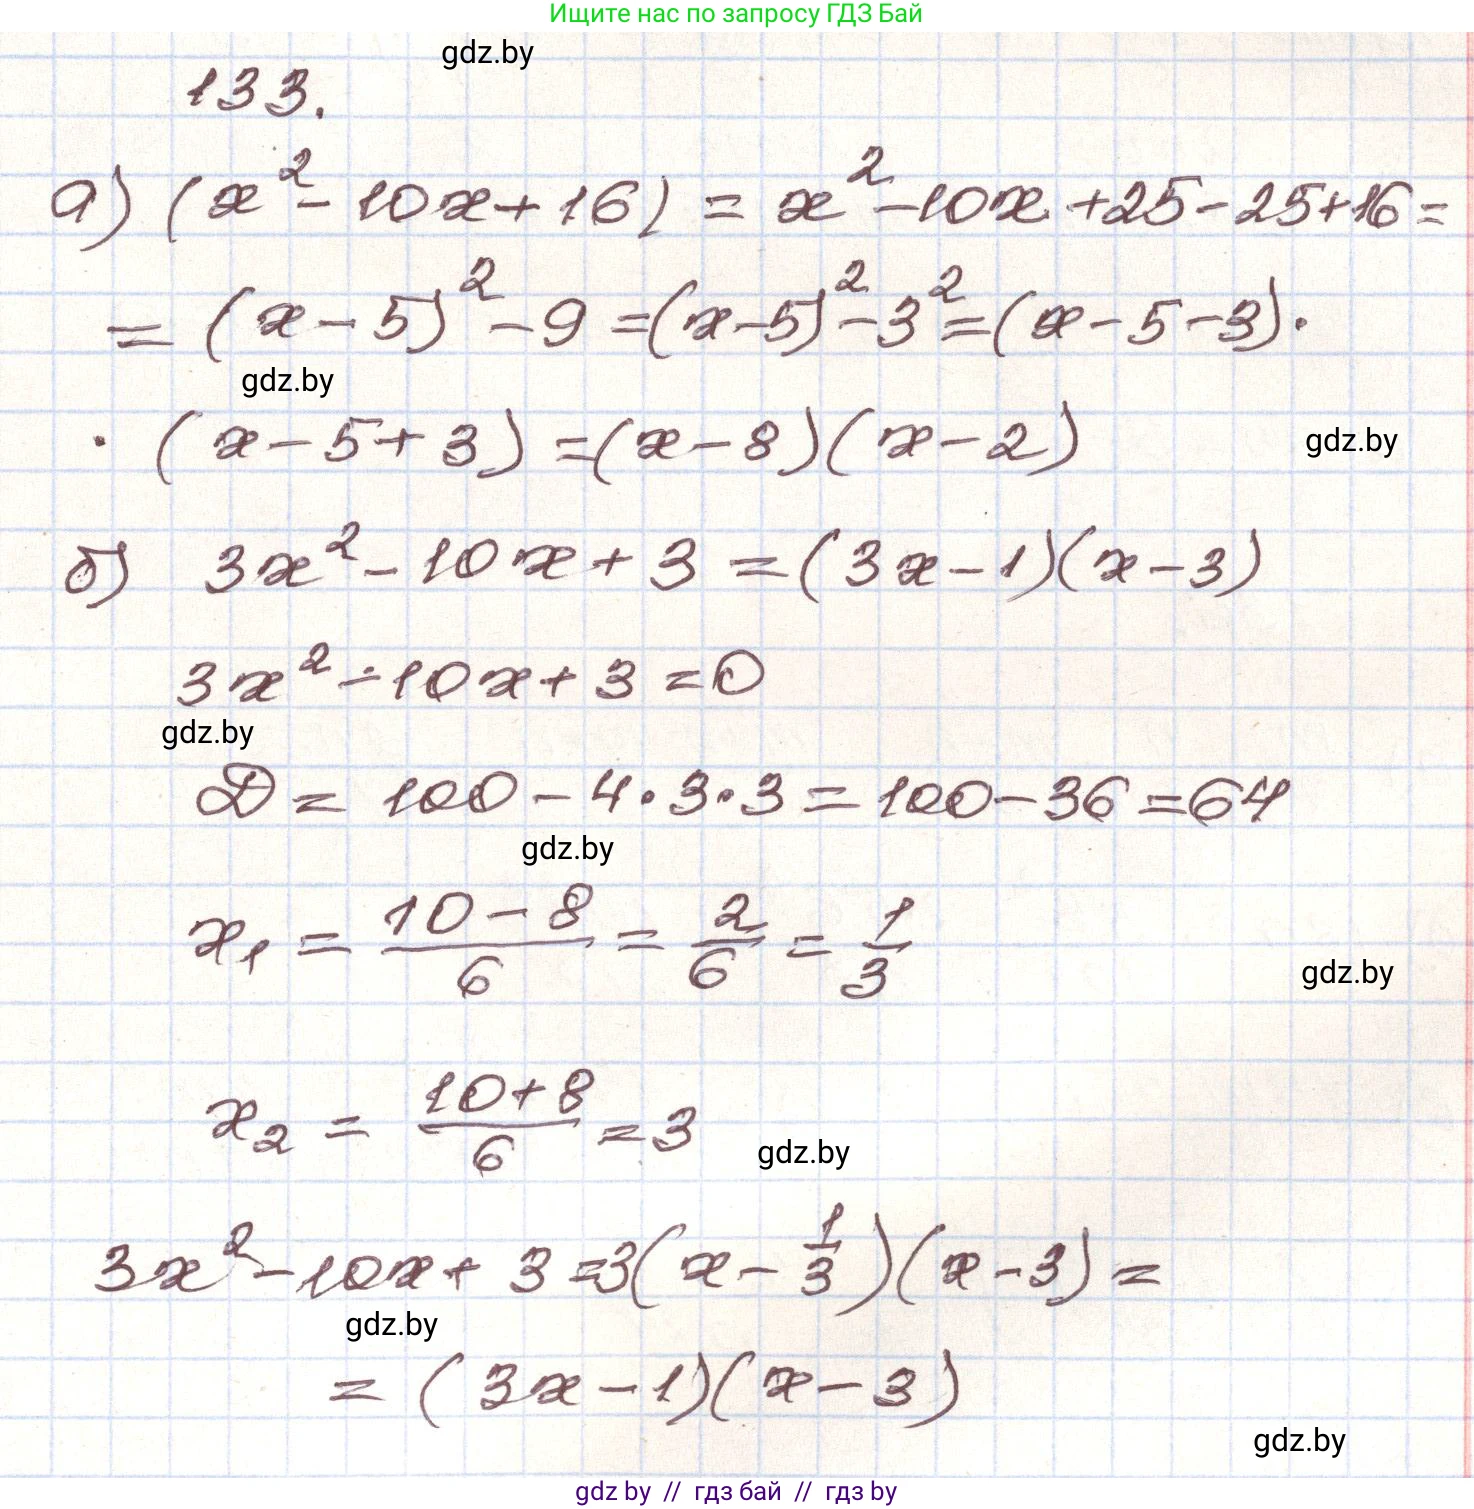 Ищите нас по запросу ГДЗ Бай
gdz.by
133.
а) (x² - 10x + 16) = x² - 10x + 25 - 25 + 16 =
= (x - 5)² - 9 = (x - 5)² - 3² = (x - 5 - 3) ·
gdz.by
· (x - 5 + 3) = (x - 8)(x - 2)
gdz.by
б) 3x² - 10x + 3 = (3x - 1)(x - 3)
3x² - 10x + 3 = 0
gdz.by
D = 100 - 4 · 3 · 3 = 100 - 36 = 64
gdz.by
x₁ = (10 - 8)/6 = 2/6 = 1/3
gdz.by
x₂ = (10 + 8)/6 = 3
gdz.by
3x² - 10x + 3 = 3(x - 1/3)(x - 3) =
gdz.by
= (3x - 1)(x - 3)
gdz.by
gdz by // гдз бай // гдз by